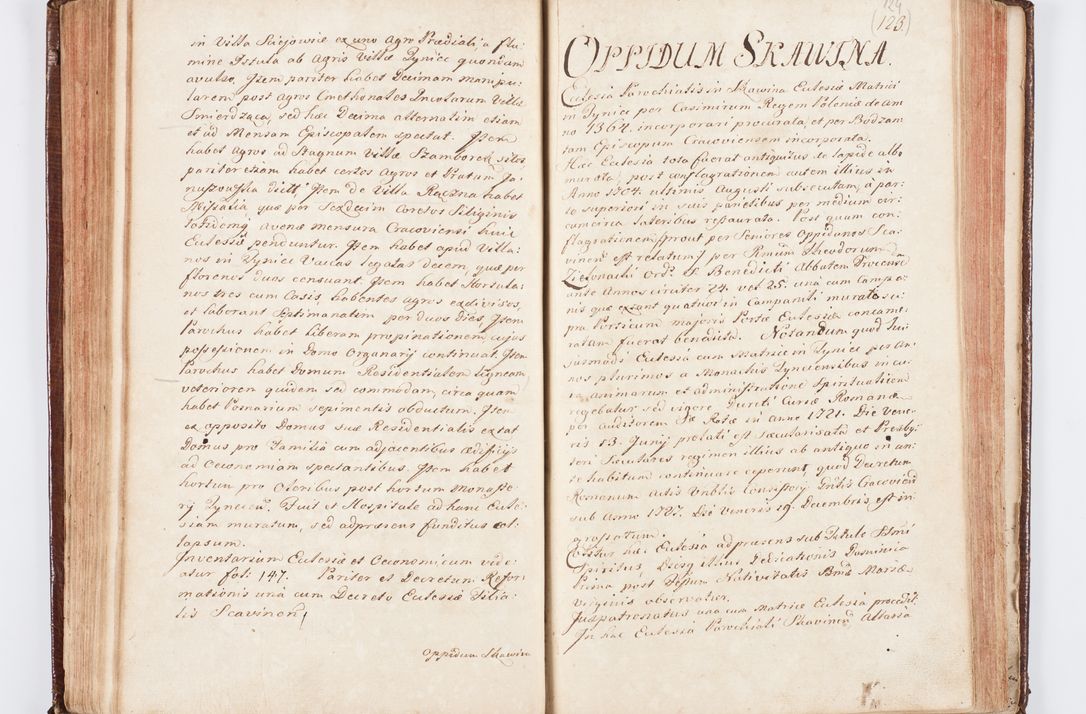 in Villa Sciejowice ex uno Agro Prædiali, a flu-
mine Istula ab Agris Villæ Tyniec quondam
avulso. Item pariter habet Decimam manipu-
larem post Agros Cmethonales Incolarum Villæ
Smierdzaca, sed hæc Decima alternatim etiam
et ad Mensam Episcopalem spectat. Item
habet Agros ad Stagnum Villæ Szamborek sitos
pariter etiam habet certos Agros et Pratum Ja-
nuszowska dictu Item de Villa Raczna habet
Missalia quæ per Sexdecim Coretos Siliginis
totidemq avenæ mensura Cracoviensi huic
Eclesiæ penduntur. Item habet apud Villa-
nos in Tyniec Vacas legatas decem, quæ per
florenos duos censuant. Item habet Hortula-
nos tres cum Casis, habentes agros exdivisos,
et laborant Septimanatim per duos dies, Item
Parochus habet liberam propinationem, cujus
possessionem in Domo Organarij continuat. Item
Parochus habet Domum Residentialem ligneam
veteriorem quidem sed commodam, circa quam
habet Pomarium sepimentis abductum. Item
ex opposito Domus suæ Residentialis extat
Domus pro Familia cum adjacentibus ædificijs
ad Oeconomiam spectantibus. Item habet
hortum pro Oleribus post hortum Monaste-
rij Tyneciens. Fuit et Hospitale ad hanc Ecle-
siam muratum, sed adpræsens funditus col-
lapsum.
Inventarium Eclesiæ et Oeconomicum vide-
atur fol: 147. Pariter et Decretum Refor-
mationis una cum Decreto Eclesiæ Filia-
lis Scavinen
Oppidum Skawina
124
(123.)
OPPIDUM SKAWINA.
Eclesia Parochialis in Skawina Eclesiæ Matrici
in Tyniec per Casimirum Regem Poloniæ de an-
no 1364. incorporari procurata, et per Bodzan-
tam Episcopum Cracoviensem incorporata.
Hæc Eclesia tota fuerat antiquitus ex lapide albo
murata, post conflagrationem autem illius in
Anno 1704. ultimis Augusti subsecutam, a par-
te superiori in suis parietibus per medium cir-
cumcirca lateribus restaurata. Post quam con-
flagrationem, prout per Seniores Oppidanos Sca-
vinen est relatum, per Rmum Theodorum
Zielonacki Ord: S. Benedicti Abbatem Trocens
ante Annos circiter 24. vel 25. una cum Campa-
nis quæ extant quatuor in Campanili murato su-
pra Porticum majoris Portæ Eclesiæ concame-
ratam fuerat benedicta. Notandum quod hui-
usmodi Eclesia cum Matrice in Tyniec per An-
nos plurimos a Monachis Tynciensibus in cu-
ra animarum et administratione Spirituali
regebatur sed vigore Dureti Curiæ Romanæ
per Auditorem Sæ Rotæ in Anno 1721. Die Vene-
ris 13. Junij prolati est sæcularisata et Presby-
teri Sæculares regimen illius ab antiquo in an-
te habitum continuare ceperunt, quod Decretum
Romanum Actis Vnblis Consistorij Gnlis Cracovien
sub Anno 1727. Die Veneris 19. Decembris, est in-
grossatum.
Colitur hæc Eclesia adpræsens sub Titulo SStmi
Spiritus, Diesq illius Dedicationis Dominica
Prima post Festum Nativitatis Bmæ Mariæ
Virginis observatur.
Juspatronatus una cum Matrice Eclesia procedit.
In hac Eclesia Parochiali Skavinen Altaria